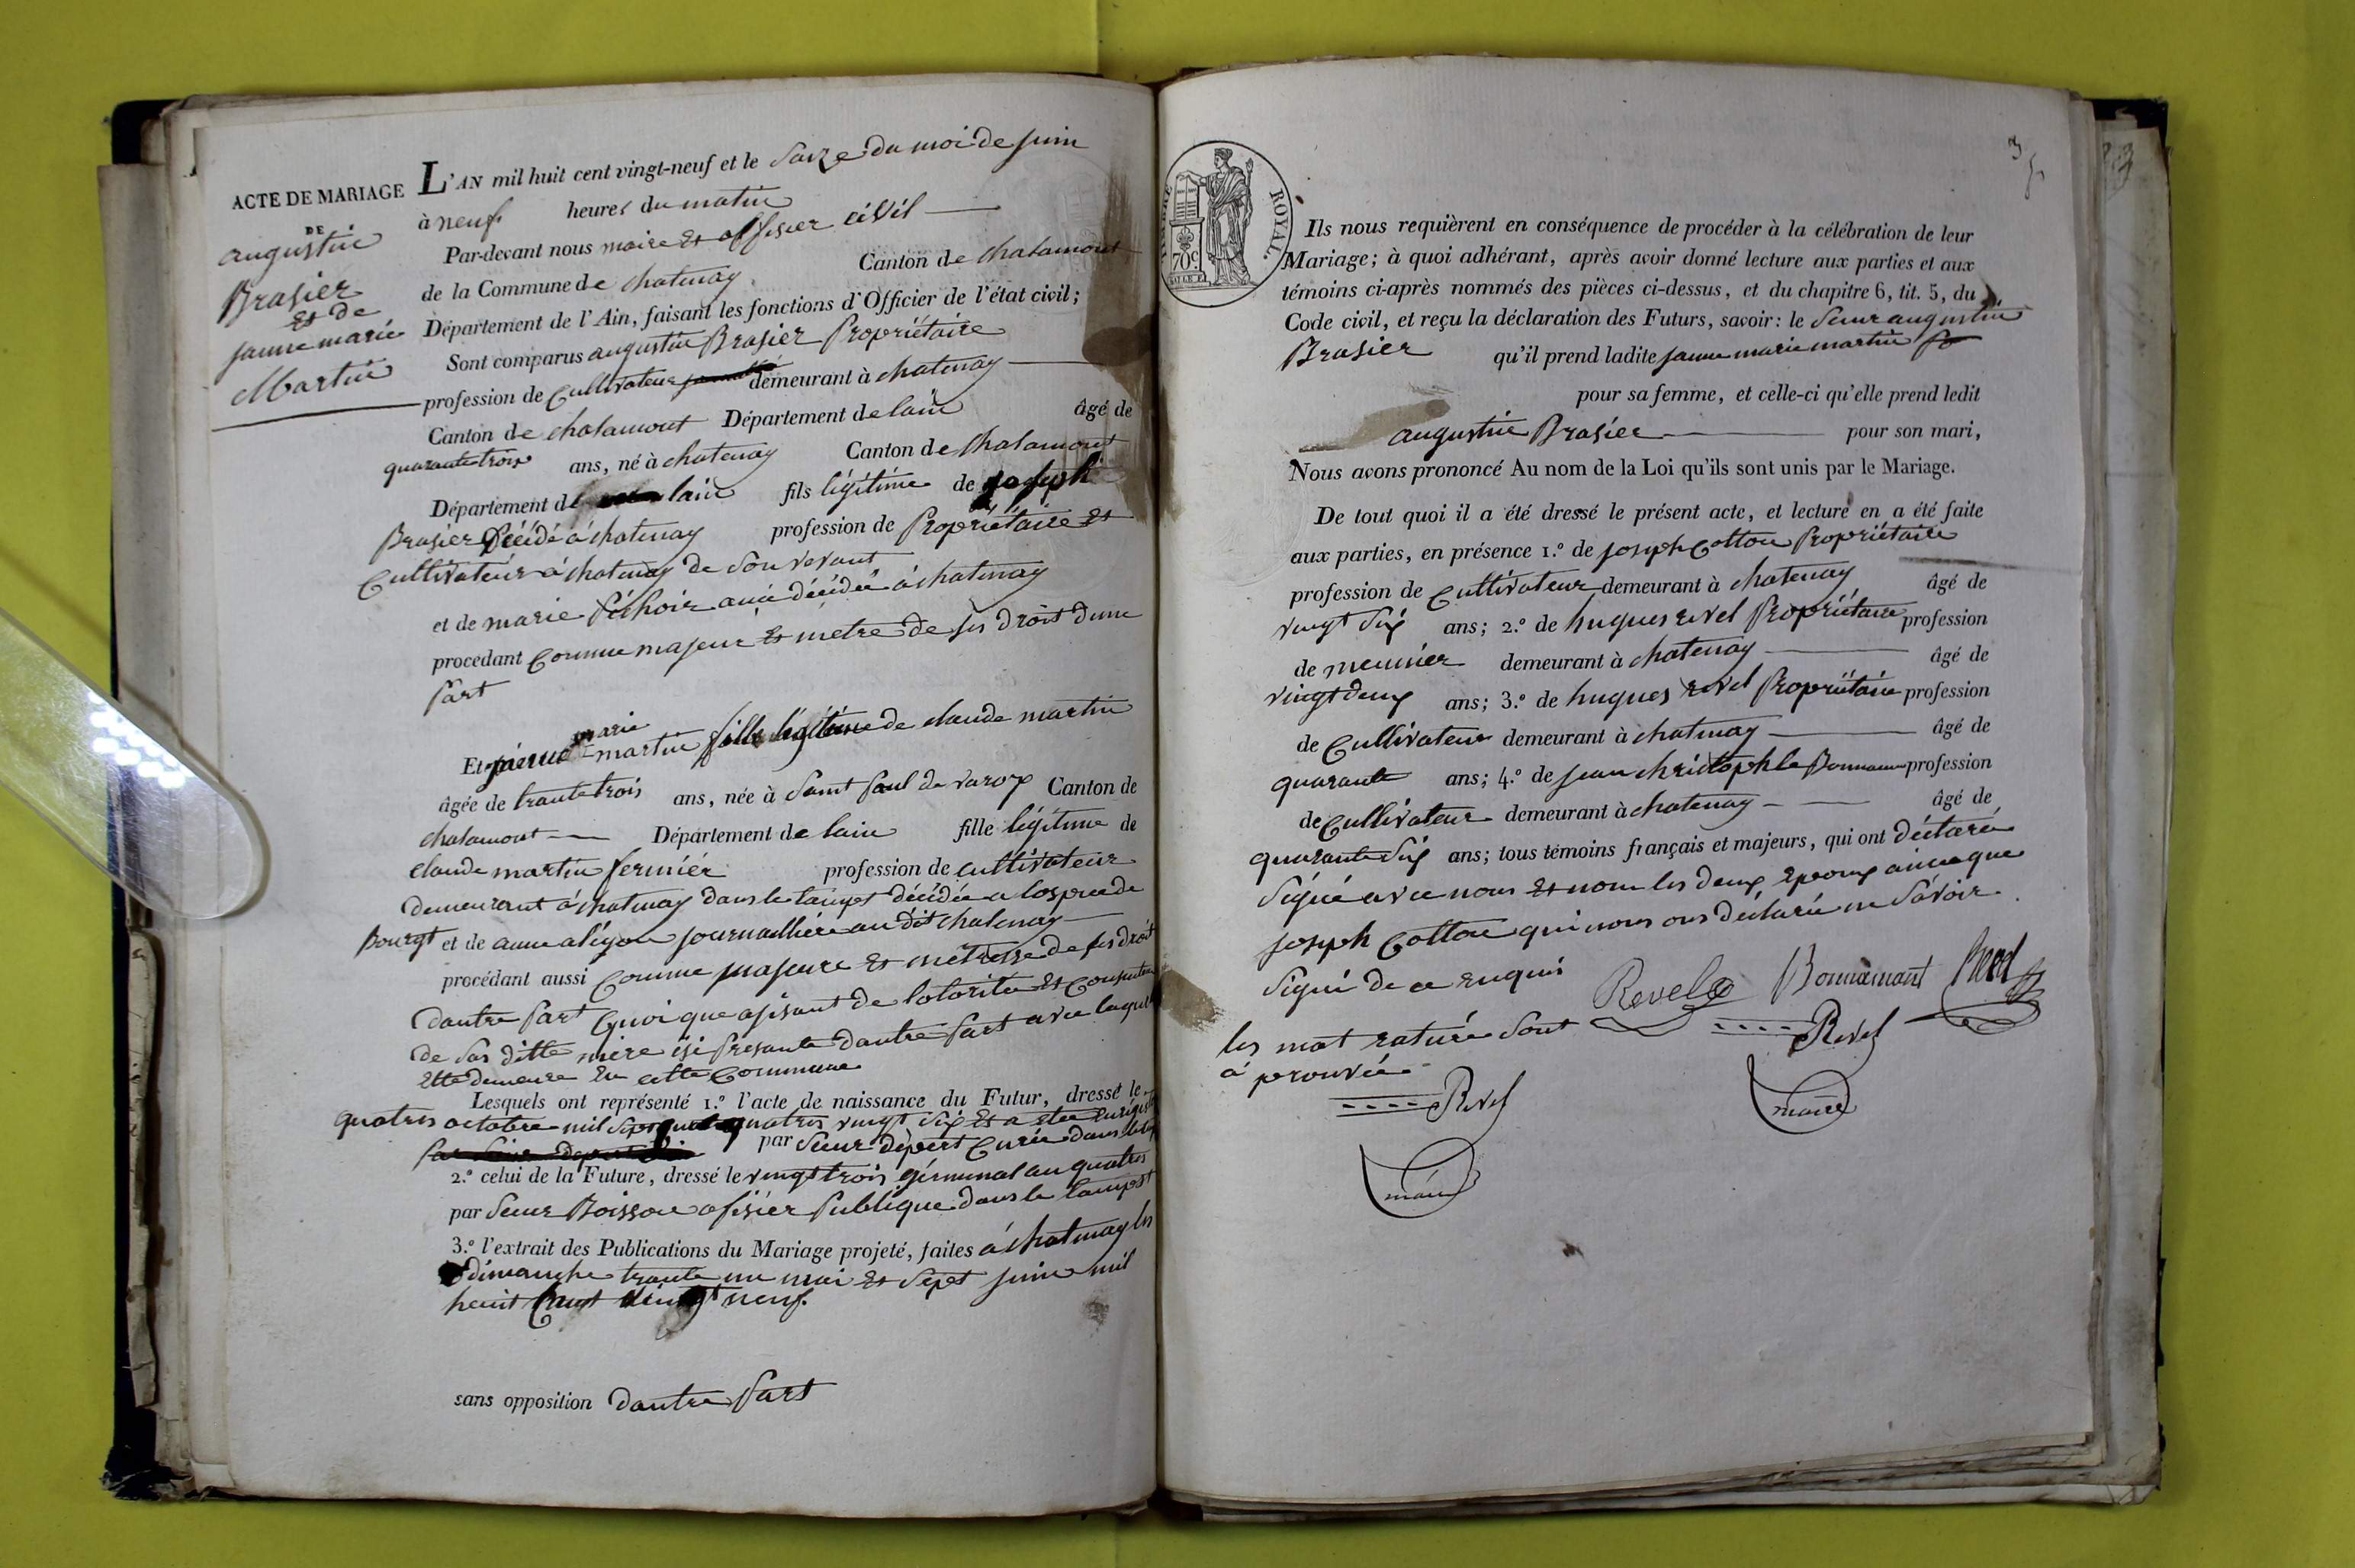 ACTE DE MARIAGE
DE
augustin
Brasier
et de
janne marie
Martin
L'AN mil huit cent vingt-neuf et le saize du moi de juin
à neuf heures du matin
Par-devant nous maire et offisier civil
de la Commune de chatenay Canton de chalamont
Département de l'Ain, faisant les fonctions d'Officier de l'état civil;
Sont comparus augustin Brasier Propriétaire
profession de Cultivateur demeurant à chatenay
Canton de chalamont Département de lain âgé de
quarante trois ans, né à chatenay Canton de chalamont
Département de lain fils légitime de joseph
Brasier Décidé à chatenay profession de Propriétaire et
Cultivateur à chatenay de son vevant
et de marie décidée à chatenay
procédant Comme majeur et metre de ses droit dune
part
Et janne marie martin fille légitime de claude martin
âgée de trante trois ans, née à Saint Paul de varax Canton de
chalamont Département de lain fille légitime de
claude martin fermier profession de cultivateur
demeurant à chatenay dans le tampt décidée a lospice de
Bourgt et de anne aligon journallière au dit chatenay
procédant aussi Comme majeure et métresse de ses droit
dautre part Quoique agisant de lotorité et consentem
de sas ditte mère isi presante dautre part avec laquel
elle demeure en cette Commune
Lesquels ont représenté 1.º l'acte de naissance du Futur, dressé le
quatres octobre mil sept quatres vingt six et a etée
par sieur dépert Curée dans le
2.º celui de la Future, dressé le vingt trois germinal an quatres
par sieur Boisson ofisier publique dans le tampst
3.º l'extrait des Publications du Mariage projeté, faites à chatenay les
dimanche trante un mai et sept juin mil
heuit Cent vingt neuf.
sans opposition dautre part
TIMBRE ROYAL.
70c.
3
Ils nous requièrent en conséquence de procéder à la célébration de leur
Mariage; à quoi adhérant, après avoir donné lecture aux parties et aux
témoins ci-après nommés des pièces ci-dessus, et du chapitre 6, tit. 5, du
Code civil, et reçu la déclaration des Futurs, savoir: le sieur augustin
Brasier qu'il prend ladite janne marie martin
pour sa femme, et celle-ci qu'elle prend ledit
augustin Brasier pour son mari,
Nous avons prononcé Au nom de la Loi qu'ils sont unis par le Mariage.
De tout quoi il a été dressé le présent acte, et lecture en a été faite
aux parties, en présence 1.º de joseph Cotton Propriétaire
profession de Cultivateur demeurant à chatenay âgé de
vingt six ans; 2.º de hugues revel Propriétaire profession
de meunier demeurant à chatenay âgé de
vingt deux ans; 3.º de hugues revel Propriétaire profession
de Cultivateur demeurant à chatenay âgé de
quarante ans; 4.º de jean christophle Bonnamour profession
de Cultivateur demeurant à chatenay âgé de
quarante six ans; tous témoins français et majeurs, qui ont déclaré
signé avec nous et non les deux epoux aince que
joseph Cotton qui nous ons déclaré ne savoir
signé de ce enquis
Revel Bonnamant Revel
les mot raturée sont
a prouvée
Revel
maire
Revel
maire